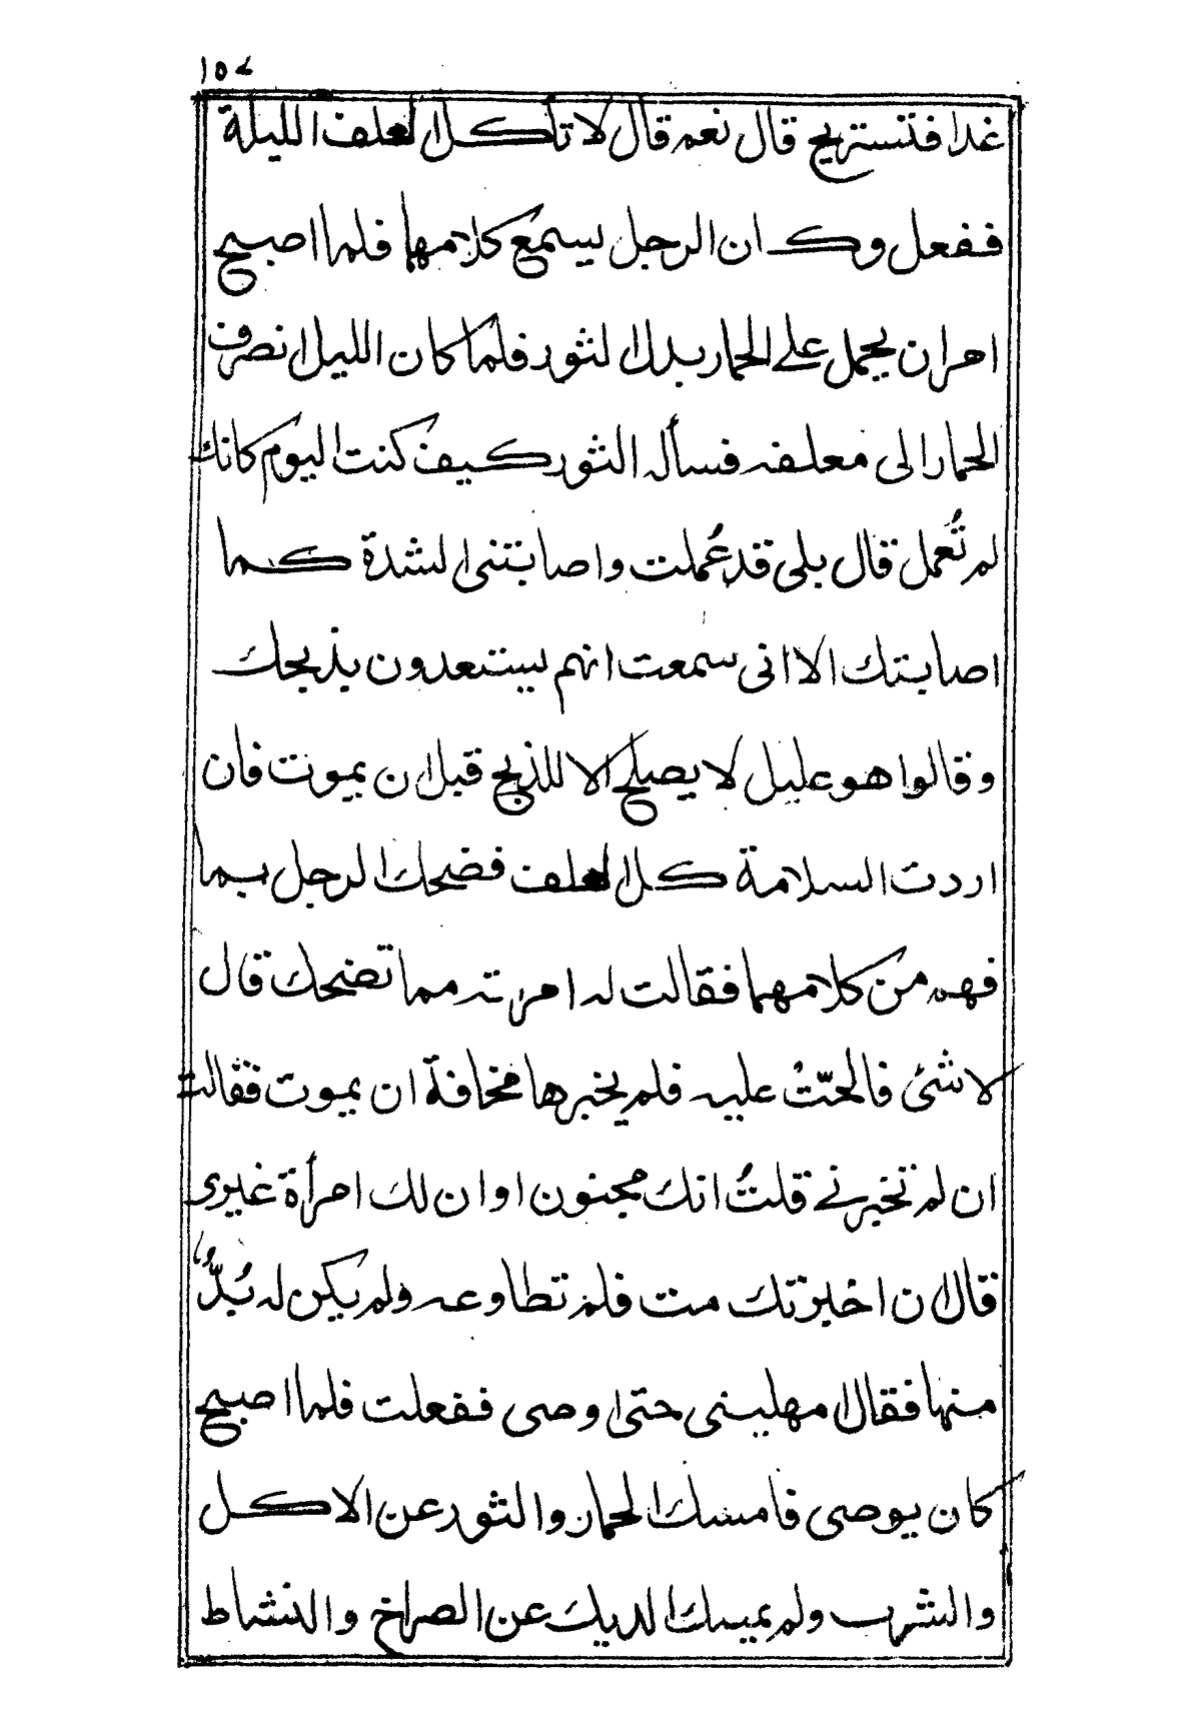 ١٥٧
غدا فتستريح قال نعم قال لا تأكل العلف الليلة
ففعل وكان الرجل يسمع كلامهما فلما اصبح
امر ان يحمل على الحمار بدل الثور فلما كان الليل انصرف
الحمار الى معلفه فسأله الثور كيف كنت اليوم كانك
لم تُعمل قال بلى قد عُملت واصابتنى الشدة كما
اصابتك الا انى سمعت انهم يستعدون بذبحك
وقالوا هو عليل لا يصلح الا للذبح قبل ان يموت فان
اردت السلامة كل العلف فضحك الرجل بما
فهم من كلامهما فقالت له امرته مما تضحك قال
لا شئ فالحّتْ عليه فلم يخبرها مخافة ان يموت فقالت
ان لم تخبرنى قلتُ انك مجنون او ان لك امرأة غيرى
قال ان اخبرتك مت فلم تطاوعه ولم يكن له بُدٌّ
منها فقال امهلينى حتى اوصى ففعلت فلما اصبح
كان يوصى فامسك الحمار والثور عن الاكل
والشرب ولم يمسك الديك عن الصراخ والنشاط